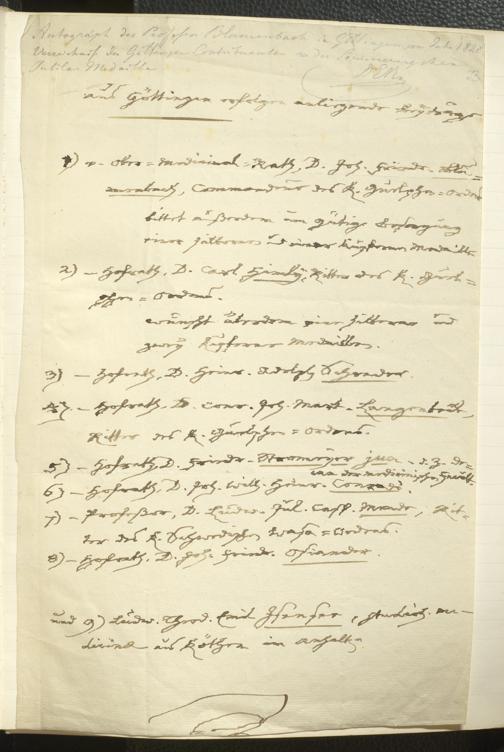 Autograph des Professor Blumenbach in Göttingen, vom Jahr 1828
Verzeichniß der Göttinger Contribuenten zu der Sömmerringschen
Jubilar Medaille
aus Göttingen erfolgen anliegende Beyträge
1) v. Ober-Medicinal-Rath, D. Joh. Friedr. Blu-
menbach, Commandeur des K. Guelphen-Ordens
bittet außerdem um gütige Besorgung
einer silbernen und einer kupfernen Medaille
2) – Hofrath, D. Carl Himly, Ritter des K. Guel-
phen-Ordens.
wünscht überdem eine silberne und
zwey kupferne Medaillen.
3) – Hofrath, D. Heinr. Adolph Schrader.
4) – Hofrath, D. Conr. Joh. Mart. Langenbeck,
Ritter des K. Guelphen-Ordens.
5) – Hofrath, D. Friedr. Stromeyer jun. d. Z. De-
can der medicinischen Facult.
6) – Hofrath, D. Joh. Wilh. Heinr. Conradi.
7) – Professor, D. Ludw. Jul. Casp. Mende, Rit-
ter des K. Schwedischen Wasa-Ordens.
8) – Hofrath, D. Joh. Friedr. Osiander.
und 9) Ludw. Theod. Emil Isensee, studios. me-
dicinae aus Köthen im Anhalt.